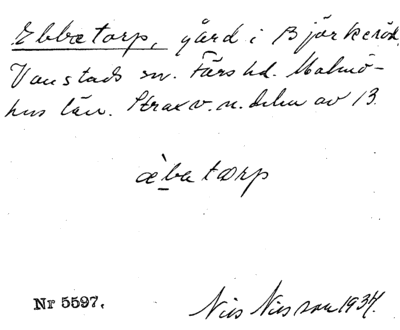 Ebbetorp, gård i Björkeröd,
Vanstads sn. Färs hd. Malmö-
hus län. Strax v. n. delen av 13.
æ̀batɔrp
Nr 5597.
Nils Nilsson 1937.